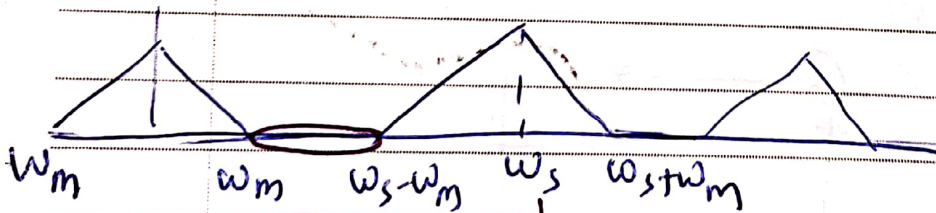 ωm ωm ωs-ωm ωs ωs+ωm